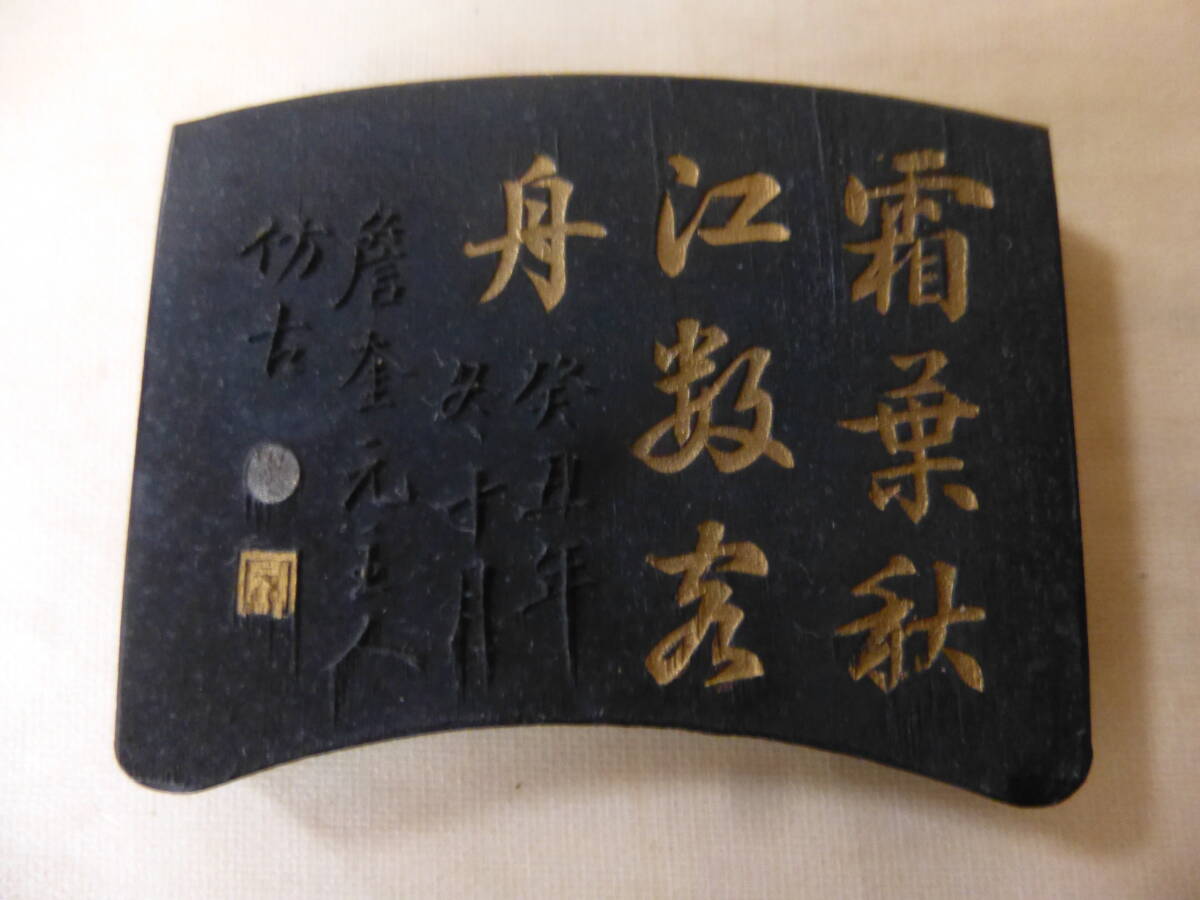 霜葉秋
江数客
舟
癸丑年
冬十月
詹奎元主人
仿古